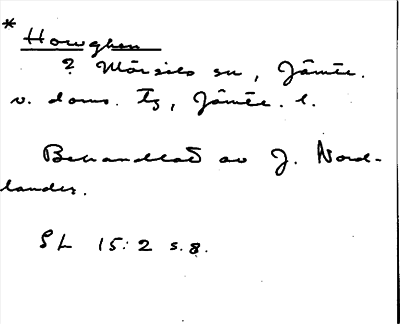 * Howghen
? Mörsils sn, Jämtl.
v. doms. tg, Jämtl. l.
Behandlat av J. Nord-
lander.
SL 15:2 s.8.